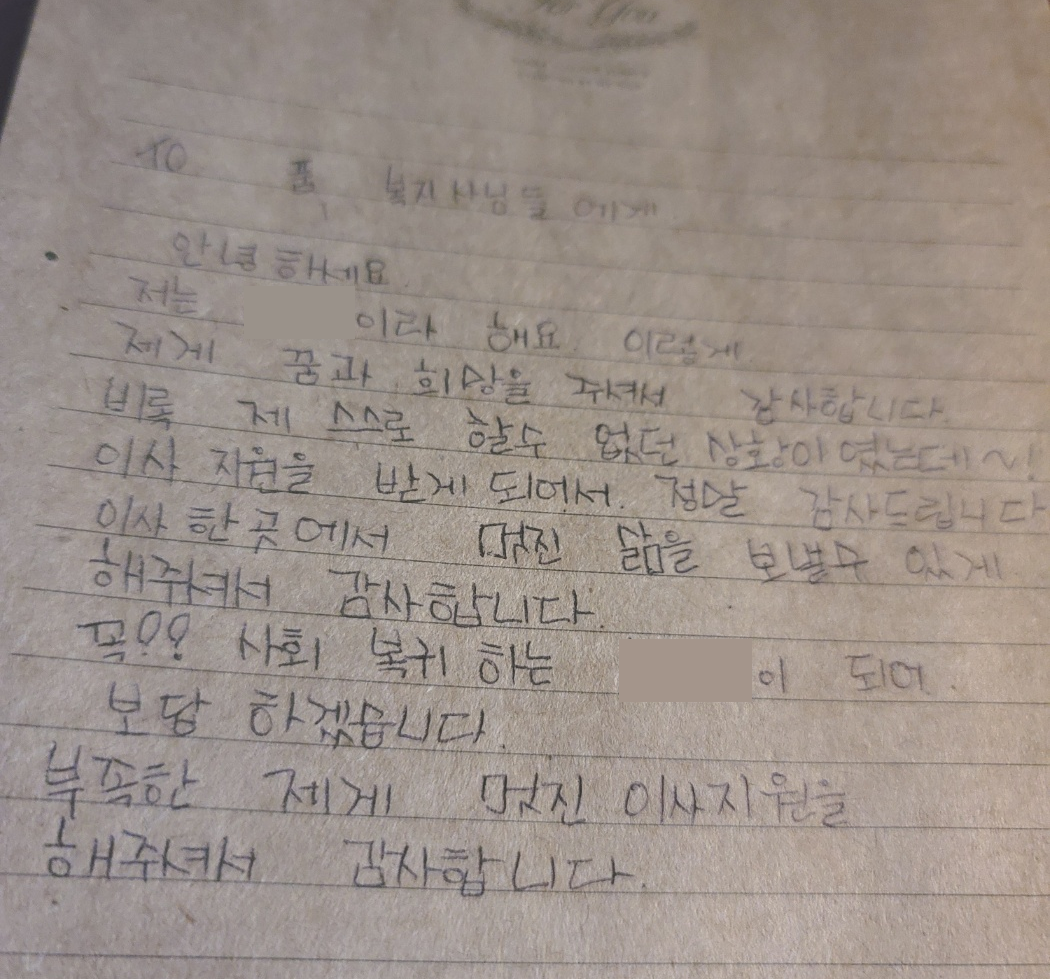 For You
TO 품 복지사님들 에게
안녕 하세요.
저는 이라 해요. 이렇게
제게 꿈과 희망을 주셔서 감사합니다.
비록 제 스스로 할수 없던 상황이 였는데~!
이사 지원을 받게 되어서. 정말 감사드립니다
이사 한 곳에서 멋진 삶을 보낼수 있게
해주셔서 감사합니다.
꼭?? 사회 복귀 하는 이 되어.
보답 하겠습니다.
부족한 제게 멋진 이사지원을
해주셔서 감사합니다.